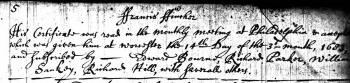 5
Francis Fincher
His Certificate was read in the monthly meeting at Philadelphia &
which was given him at worcester the 14th Day of the 3d month, 1683
and subscribed by Edward Bourne, Richard Parker, William
Sankey, Richard Hill, with severale others.